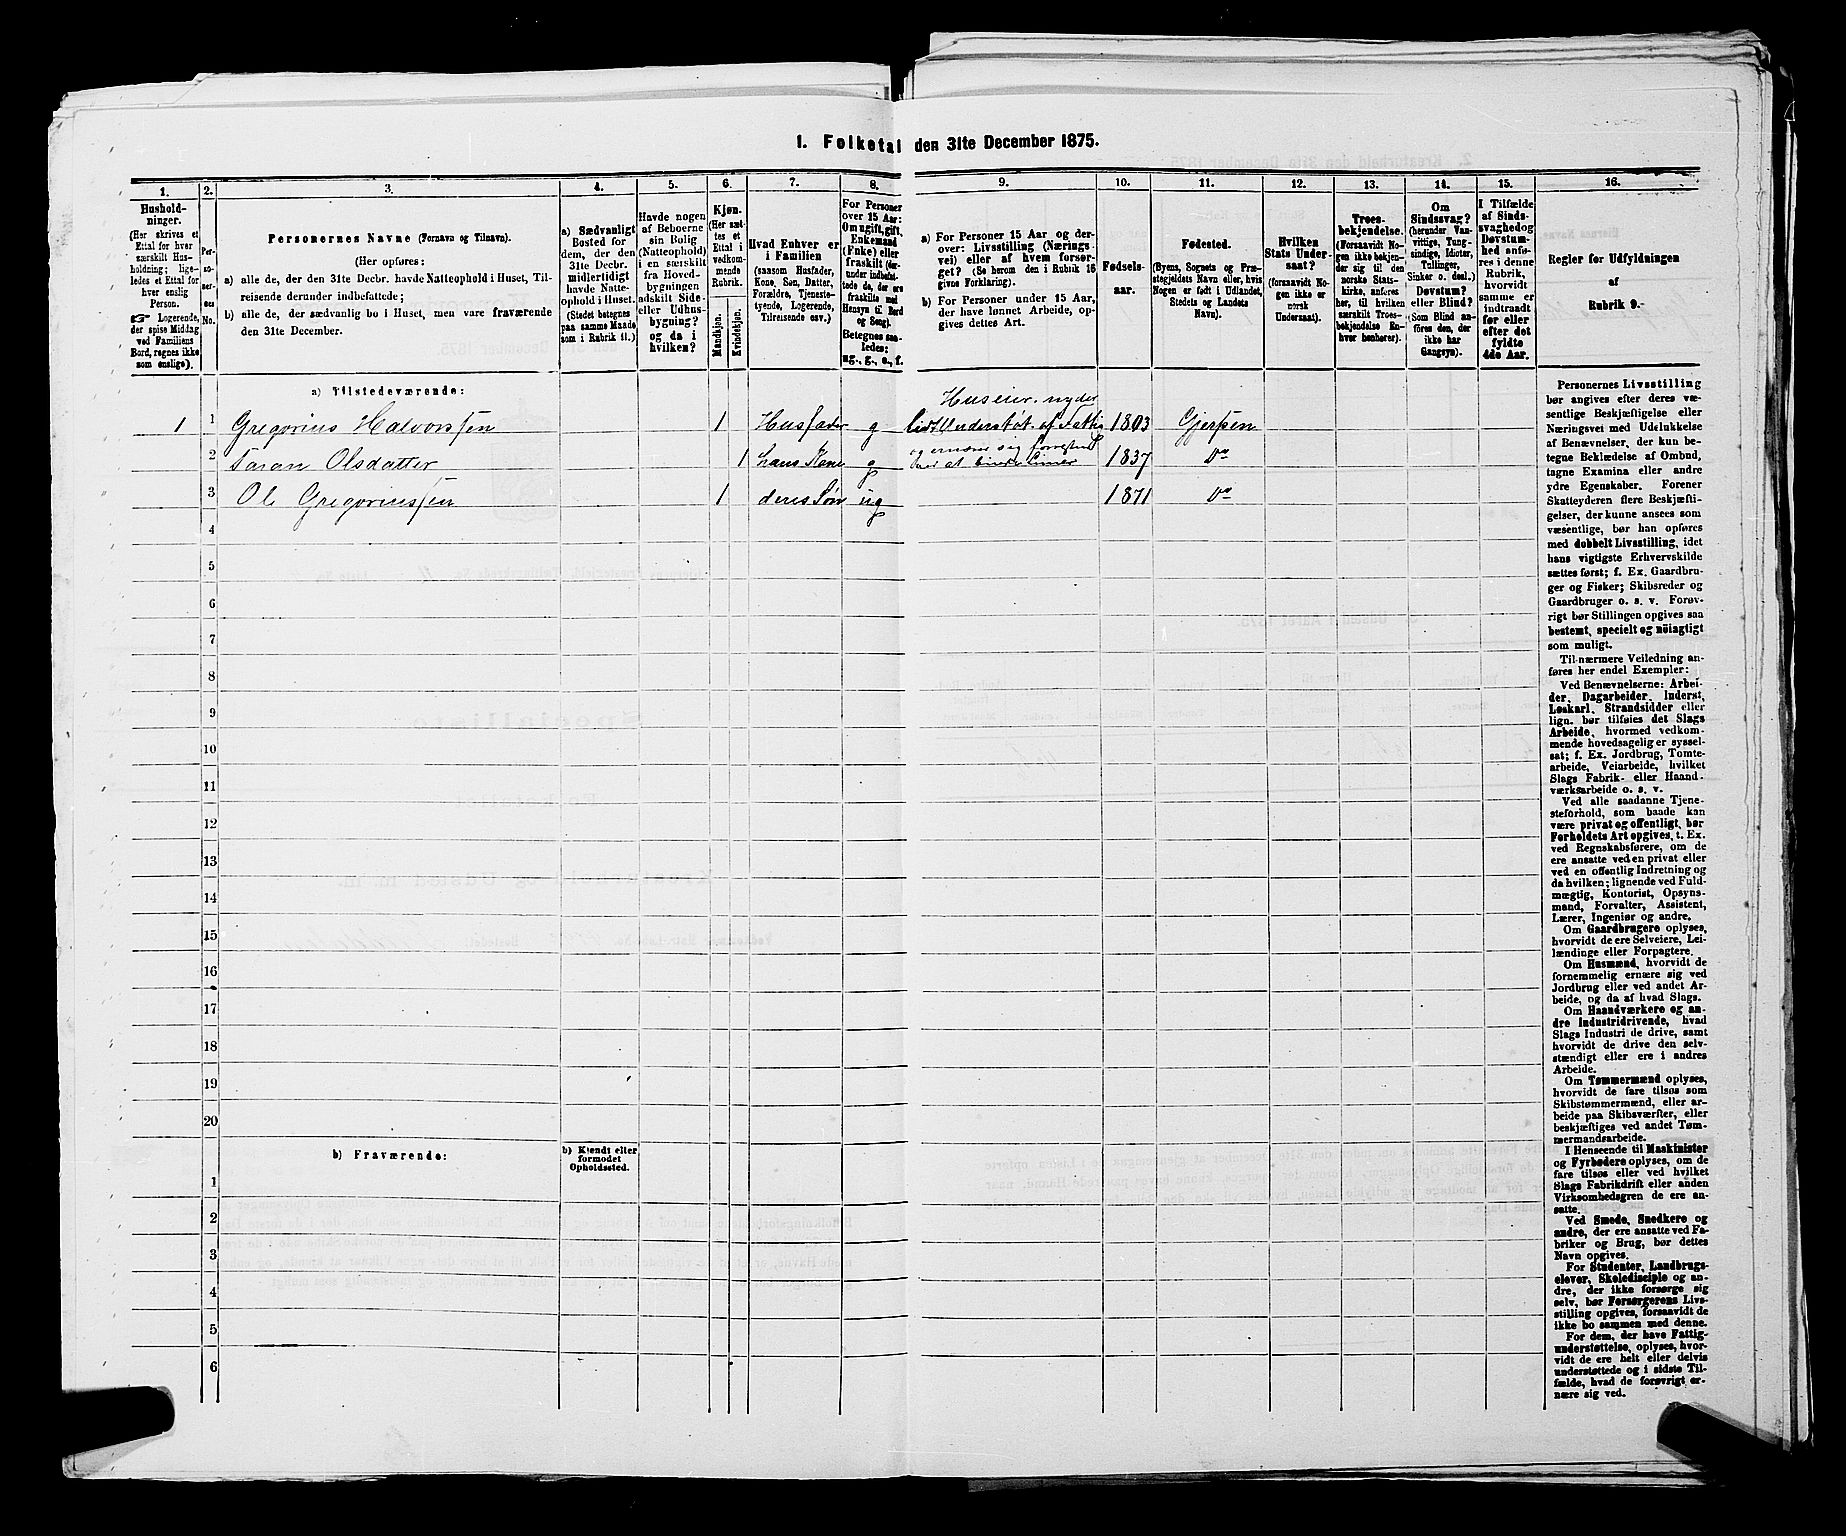 1. Folketal den 31te December 1875.
1.
2.
3.
4.
5.
6.
7.
8.
9.
10.
11.
12.
13.
14.
15.
16.
Hushold-
ninger.
(Her skrives et
Ettal for hver
særskilt Hus-
holdning; lige-
ledes et Ettal for
hver enslig
Person.
☞ Logerende,
der spise Middag
ved Familiens
Bord, regnes ikke
som enslige).
Per-
so-
ner-
nes
No.
Personernes Navne (Fornavn og Tilnavn).
(Her opføres:
a) alle de, der den 31te Decbr. havde Natteophold i Huset, Til-
reisende derunder indbefattede;
b) alle de, der sædvanlig bo i Huset, men vare fraværende
den 31te December.
a) Sædvanligt
Bosted for
dem, der den
31te Decbr.
midlertidigt
havde Natte-
ophold i Huset.
(Stedet betegnes
paa samme Maade
som i Rubrik 11.)
Havde nogen
af Beboerne
sin Bolig
(Natteophold)
i en særskilt
fra Hoved-
bygningen
adskilt Side-
eller Udhus-
bygning?
og da i
hvilken?
Kjøn.
(Her sæt-
tes et
Ettal i
vedkom-
mende
Rubrik.
Mandkjøn.
Kvindekjøn.
Hvad Enhver er
i Familien
(saasom Husfader,
Kone, Søn, Datter,
Forældre, Tjeneste-
tyende, Logerende,
Tilreisende osv.)
For Personer
over 15 Aar:
Om ugift, gift,
Enkemand
(Enke) eller
fraskilt (der-
under indbefat-
tede de, der ere
fraskilte med
Hensyn til Bord
og Seng).
Betegnes saa-
ledes:
ug., g., e., f.
a) For Personer 15 Aar og der-
over: Livsstilling (Nærings-
vei) eller af hvem forsør-
get? (Se herom den i Rubrik 16
givne Forklaring).
b) For Personer under 15 Aar,
der have lønnet Arbeide, op-
gives dettes Art.
Fødsels-
aar.
Fødested.
(Byens, Sognets og Præ-
stegjeldets Navn eller, hvis
Nogen er født i Udlandet,
Stedets og Landets
Navn).
Hvilken
Stats Under-
saat?
(forsaavidt No-
gen ikke er
norsk
Undersaat).
Troes-
bekjendelse.
(Forsaavidt No-
gen ikke bekjen-
der sig til den
norske Stats-
kirke, anføres
her, til hvilken
særskilt Troes-
bekjendelse En-
hver henhører).
Om
Sindssvag?
(herunder Van-
vittige, Tung-
sindige, Idioter,
Tullinger,
Sinker o. desl.)
Døvstum?
eller Blind?
(Som Blind an-
føres den, der
ikke har
Gangsyn).
I Tilfælde
af Sinds-
svaghed og
Døvstum-
hed anfø-
res i denne
Rubrik,
hvorvidt
samme er
indtraadt
før eller
efter det
fyldte
4de Aar.
Regler for Udfyldningen
af
Rubrik 9.
a) Tilstedeværende:
Huseier, nyder
1 1 Gregorius Halvorssen 1 Husfader g lidt Understøt. af Fattig 1803 Gjerpen
2 Taran Olsdatter 1 hans Kone g 1837 Do
3 Ole Gregoriussen 1 deres Søn ug 1871 Do
4
5
6
7
8
9
10
11
12
13
14
15
16
17
18
19
20
b) Fraværende:
b) Kjendt eller
formodet
Opholdssted.
1
2
3
4
5
6
Personernes Livsstilling
bør angives efter deres væ-
sentlige Beskjæftigelse eller
Næringsvei med Udelukkelse
af Benævnelser, der kun be-
tegne Beklædelse af Ombud,
tagne Examina eller andre
ydre Egenskaber. Forener
Skatteyderen flere Beskjæfti-
gelser, der kunne ansees som
væsentlige, bør han opføres
med dobbelt Livsstilling, idet
hans vigtigste Erhvervskilde
sættes først; f. Ex. Gaardbru-
ger og Fisker; Skibsreder og
Gaardbruger o. s. v. Forøv-
rigt bør Stillingen opgives saa
bestemt, specielt og nøiagtigt
som muligt.
Til nærmere Veiledning an-
føres her endel Exempler:
Ved Benævnelserne: Arbei-
der, Dagarbeider, Inderst,
Løskarl, Strandsidder eller
lign. bør tilføies det Slags
Arbeide, hvormed vedkom-
mende hovedsagelig er syssel-
sat; f. Ex. Jordbrug, Tomte-
arbeide, Veiarbeide, hvilket
Slags Fabrik- eller Haand-
værksarbeide o. s. v.
Ved alle saadanne Tjene-
steforhold, som baade kan
være privat og offentligt, bør
Forholdets Art opgives, t. Ex.
ved Regnskabsførere, om de
ere ansatte ved en privat eller
ved en offentlig Indretning og
da hvilken; lignende ved Fuld-
mægtig, Kontorist, Opsyns-
mand, Forvalter, Assistent,
Lærer, Ingeniør og andre.
Om Gaardbrugere oplyses,
hvorvidt de ere Selveiere, Lei-
lændinge eller Forpagtere.
Om Husmænd, hvorvidt de
fornemmelig ernære sig ved
Jordbrug eller ved andet Ar-
beide, og da af hvad Slags.
Om Haandværkere og an-
dre Industridrivende, hvad
Slags Industri de drive, samt
hvorvidt de drive den selv-
stændigt eller ere i andres
Arbeide.
Om Tømmermænd oplyses,
hvorvidt de fare tilsøs som
Skibstømmermænd, eller ar-
beide paa Skibsværfter, eller
beskjæftiges ved andet Tøm-
mermandsarbeide.
I Henseende til Maskinister
og Fyrbødere oplyses, om de
fare tilsøs eller ved hvilket
Slags Fabrikdrift eller anden
Virksomhedsgren de ere an-
satte.
Ved Smede, Snedkere og
andre, der ere ansatte ved Fa-
briker og Brug, bør dettes
Navn opgives.
For Studenter, Landbrugs-
elever, Skoledisciple og an-
dre, der ikke forsørge sig
selv, bør Forsørgerens Livs-
stilling opgives, forsaavidt de
ikke bo sammen med denne.
For dem, der have Fattig-
understøttelse, oplyses, hvor-
vidt de ere helt eller delvis
understøttede og i sidste Til-
fælde, hvad de forøvrigt er-
nære sig ved.